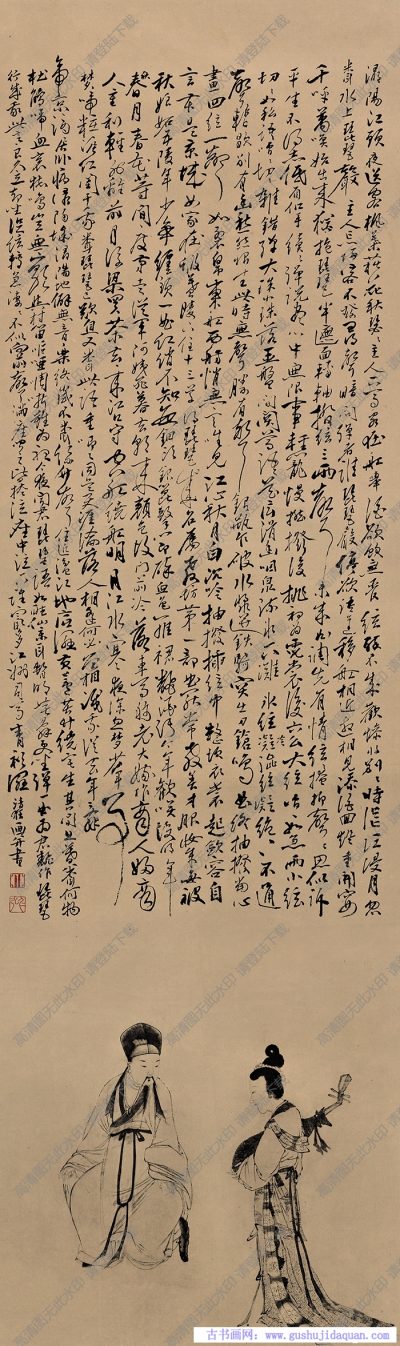 潯陽江頭夜送客楓葉荻花秋瑟瑟主人下馬客在船舉酒欲飲無管絃醉不成歡慘將別別時茫茫江浸月忽
聞水上琵琶聲主人忘歸客不發尋聲暗問彈者誰琵琶聲停欲語遲移船相近邀相見添酒回燈重開宴
千呼萬喚始出來猶抱琵琶半遮面轉軸撥絃三兩聲未成曲調先有情絃絃掩抑聲聲思似訴
平生不得志低眉信手續續彈說盡心中無限事輕攏慢撚撥復挑初為霓裳後六么大絃嘈嘈如急雨小絃
切切如私語嘈嘈切切錯雜彈大珠小珠落玉盤間關鶯語花底滑幽咽泉流水下灘水泉冷澀絃凝絕凝絕不通
聲暫歇別有幽愁暗恨生此時無聲勝有聲銀瓶乍破水漿迸鐵騎突出刀鎗鳴曲終抽撥當心
畫四絃一聲如裂帛東船西舫悄無言唯見江心秋月白沉吟抽撥插絃中整頓衣裳起斂容自
言本是京城女家在蝦蟆陵下住十三學得琵琶成名屬教坊第一部曲罷常教善才服妝成每被
秋娘妒五陵年少爭纏頭一曲紅綃不知數鈿頭銀篦擊節碎血色羅裙翻酒污今年歡笑復明年
秋月春風等閒度弟走從軍阿姨死暮去朝來顏色故門前冷落車馬稀老大嫁作商人婦商
人重利輕離別前月浮梁買茶去去來江口守空船繞船明月江水寒夜深忽夢少年事
夢啼粧淚紅闌干我聞琵琶已歎息又聞此語重唧唧同是天涯淪落人相逢何必曾相識我從去年辭
帝京謫居臥病潯陽城潯陽地僻無音樂終歲不聞絲竹聲住近湓江地低濕黃蘆苦竹繞宅生其間旦暮聞何物
杜鵑啼血哀猿鳴豈無山歌與村笛嘔啞嘲哳難為聽今夜聞君琵琶語如聽仙樂耳暫明莫辭更坐彈一曲為君翻作琵琶
行感我此言良久立却坐促絃絃轉急淒淒不似向前聲滿座重聞皆掩泣座中泣下誰最多江州司馬青衫濕 畫并書
高清图无此水印 请登陆下载
古书画网：www.gushujidaquan.com